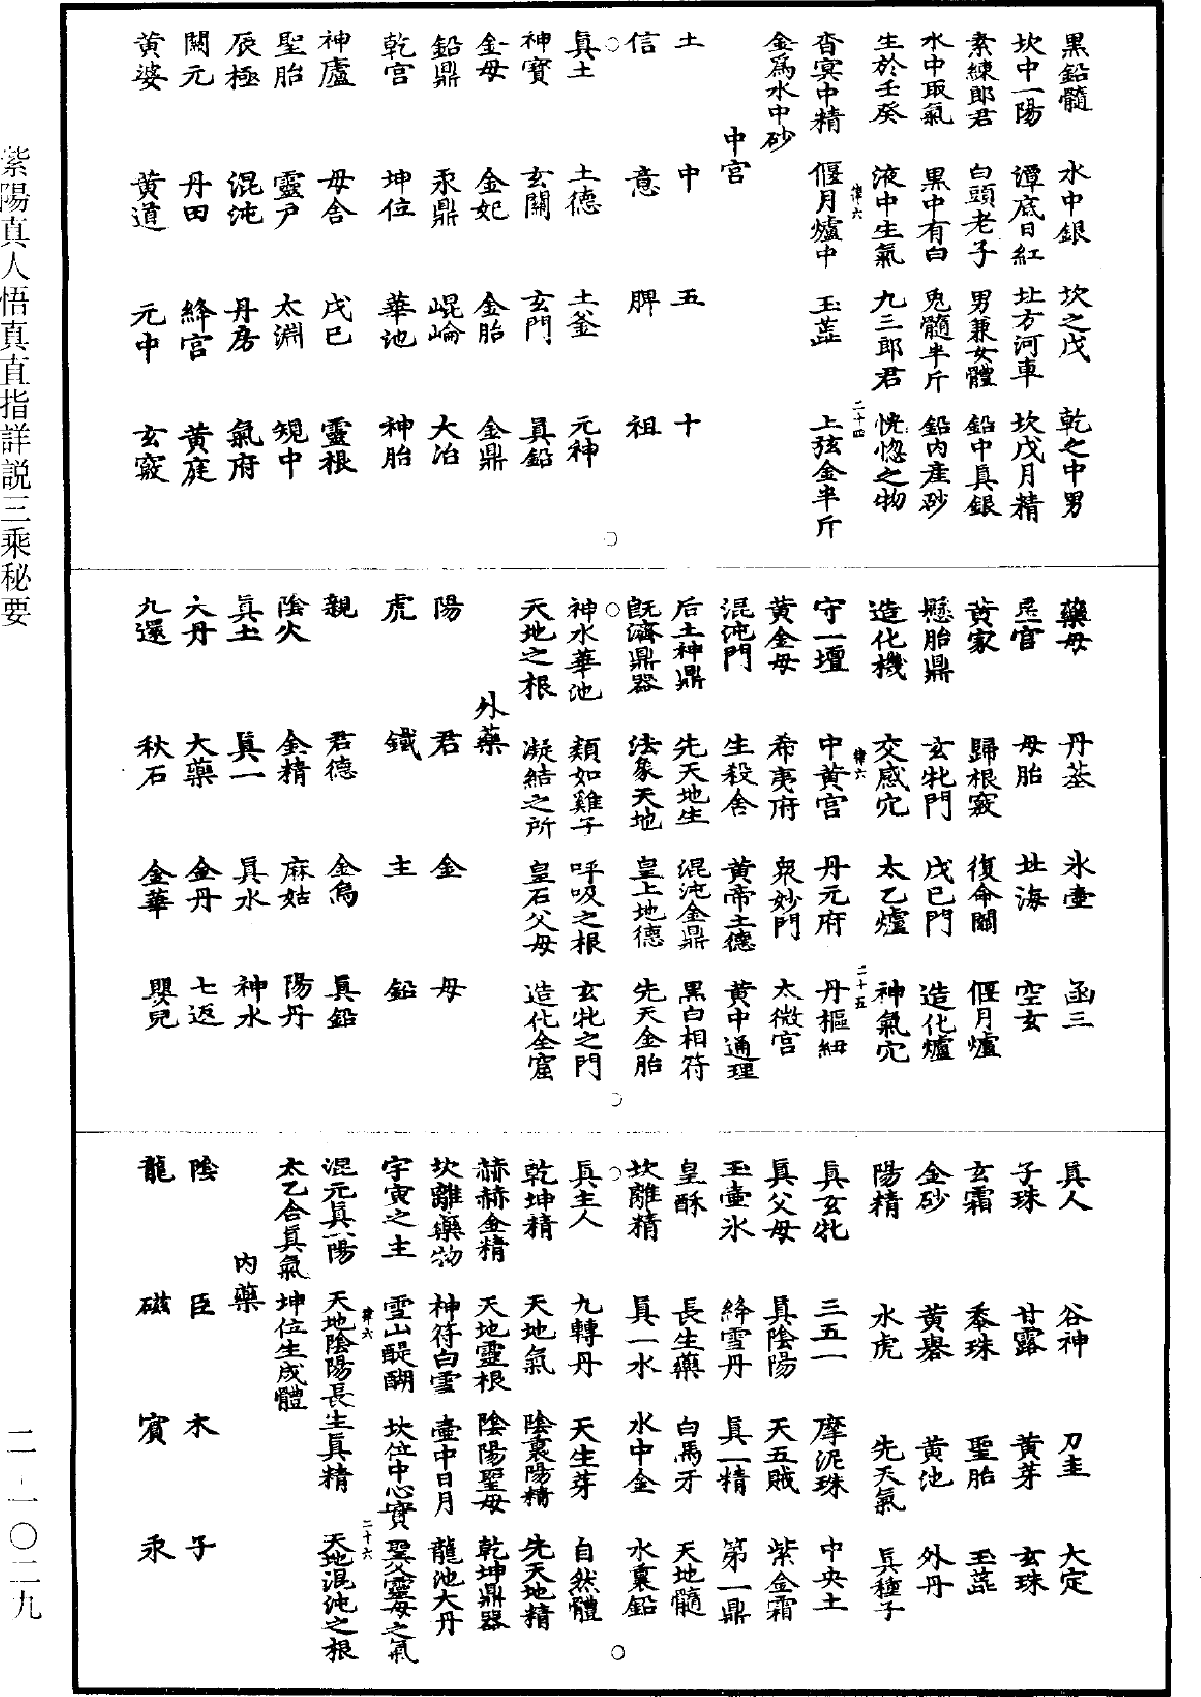 黑鉛髓　水中銀　坎之戊　乾之中男
坎中一陽　潭底日紅　北方河車　坎戊月精
素練郎君　白頭老子　男兼女體　鉛中真銀
水中取氣　黑中有白　兔髓半斤　鉛內產砂
生於壬癸　液中生氣　九三郎君　恍惚之物
律六　二十四
杳冥中精　偃月爐中　玉蕋　上弦金半斤
金爲水中砂
中宮
土　中　五　十
信　意　脾　祖
真土　土德　土釜　元神
神寶　玄關　玄門　真鉛
金母　金妃　金胎　金鼎
鉛鼎　汞鼎　崐崘　大冶
乾宮　坤位　華池　神胎
神廬　母舍　戊巳　靈根
聖胎　靈戶　太淵　規中
辰極　混沌　丹房　氣府
關元　丹田　絳宮　黃庭
黃婆　黃道　元中　玄竅
藥母　丹基　氷壷　函三
星官　母胎　北海　空玄
黃家　歸根竅　復命關　偃月爐
懸胎鼎　玄牝門　戊巳門　造化爐
造化機　交感穴　太乙爐　神氣穴
律六　二十五
守一壇　中黃宮　丹元府　丹樞紐
黃金母　希夷府　衆妙門　太微宮
混沌門　生殺舍　黃帝土德　黃中通理
后土神鼎　先天地生　混沌金鼎　黑白相符
旣濟鼎器　法象天地　皇上地德　先天金胎
神水華池　類如雞子　呼吸之根　玄牝之門
天地之根　凝結之所　皇石父母　造化金窟
外藥
陽　君　金　母
虎　鐵　主　鉛
親　君德　金烏　真鉛
陰火　金精　麻姑　陽丹
真土　真一　真水　神水
大丹　大藥　金丹　七返
九還　秋石　金華　嬰兒
真人　谷神　刀圭　大定
子珠　甘露　黃芽　玄珠
玄霜　黍珠　聖胎　玉蕋
金砂　黃轝　黃池　外丹
陽精　水虎　先天氣　真種子
真玄牝　三五一　摩泥珠　中央土
真父母　真陰陽　天五賊　紫金霜
玉壷氷　絳雪丹　真一精　第一鼎
皇酥　長生藥　白馬牙　天地髓
坎離精　真一水　水中金　水裏鉛
真主人　九轉丹　天生芽　自然體
乾坤精　天地氣　陰裏陽精　先天地精
赫赫金精　天地靈根　陰陽聖母　乾坤鼎器
坎離藥物　神符白雪　壷中日月　龍池大丹
宇寅之主　雪山醍醐　坎位中心實　聖父靈母之氣
律六　二十六
混元真一陽　天地陰陽長生真精　天地混沌之根
太乙含真氣　坤位生成體
內藥
陰　臣　木　子
龍　磁　賓　汞
紫陽真人悟真直指詳説三乘秘要
二-一〇二九